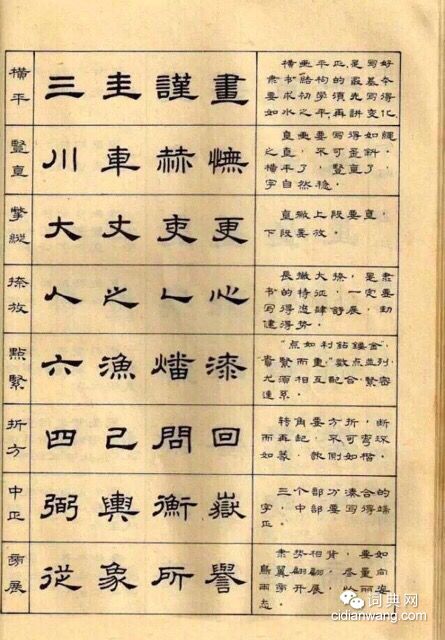 横平
三 圭 謹 畫
横画平正,是写好
隶书结构的最基本
要求,初学须先写得
如水之平,再讲变化
豎直
川 車 赫 憮
直画要写得如绳
之直,不可歪斜。
横平了,竖直了,
字自然稳。
撆縱
大 丈 吏 更
直撇上段要直,
下段要放。
捺放
人 之 心
长撇大捺,是隶
书的特征,一定要
写得恣肆舒展,劲
健得势。
點緊
六 漁 燔 漆
“点如利钻镂金”,
贵紧而重。数点並列,
尤须相互配合,紧密
连系。
折方
四 己 問 回
转角要方折,断
而再起,不可弯环
如篆,诡侧如楷。
中正
弼 輿 衡 嶽
三个部分凑合的
字,中部要写得端
正。
旁展
從 象 所 譽
隶势相背,要如
鸟翼翩翩,尽量向
两旁开展,丽姿
态。
词典网
cidianwang.com